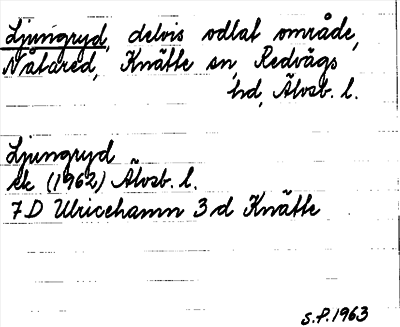 Ljungryd, delvis odlat område,
Nåtared, Knätte sn, Redvägs
hd, Älvsb. l.
Ljungryd
ek (1962) Älvsb. l.
7D Ulricehamn 3d Knätte
S.P. 1963